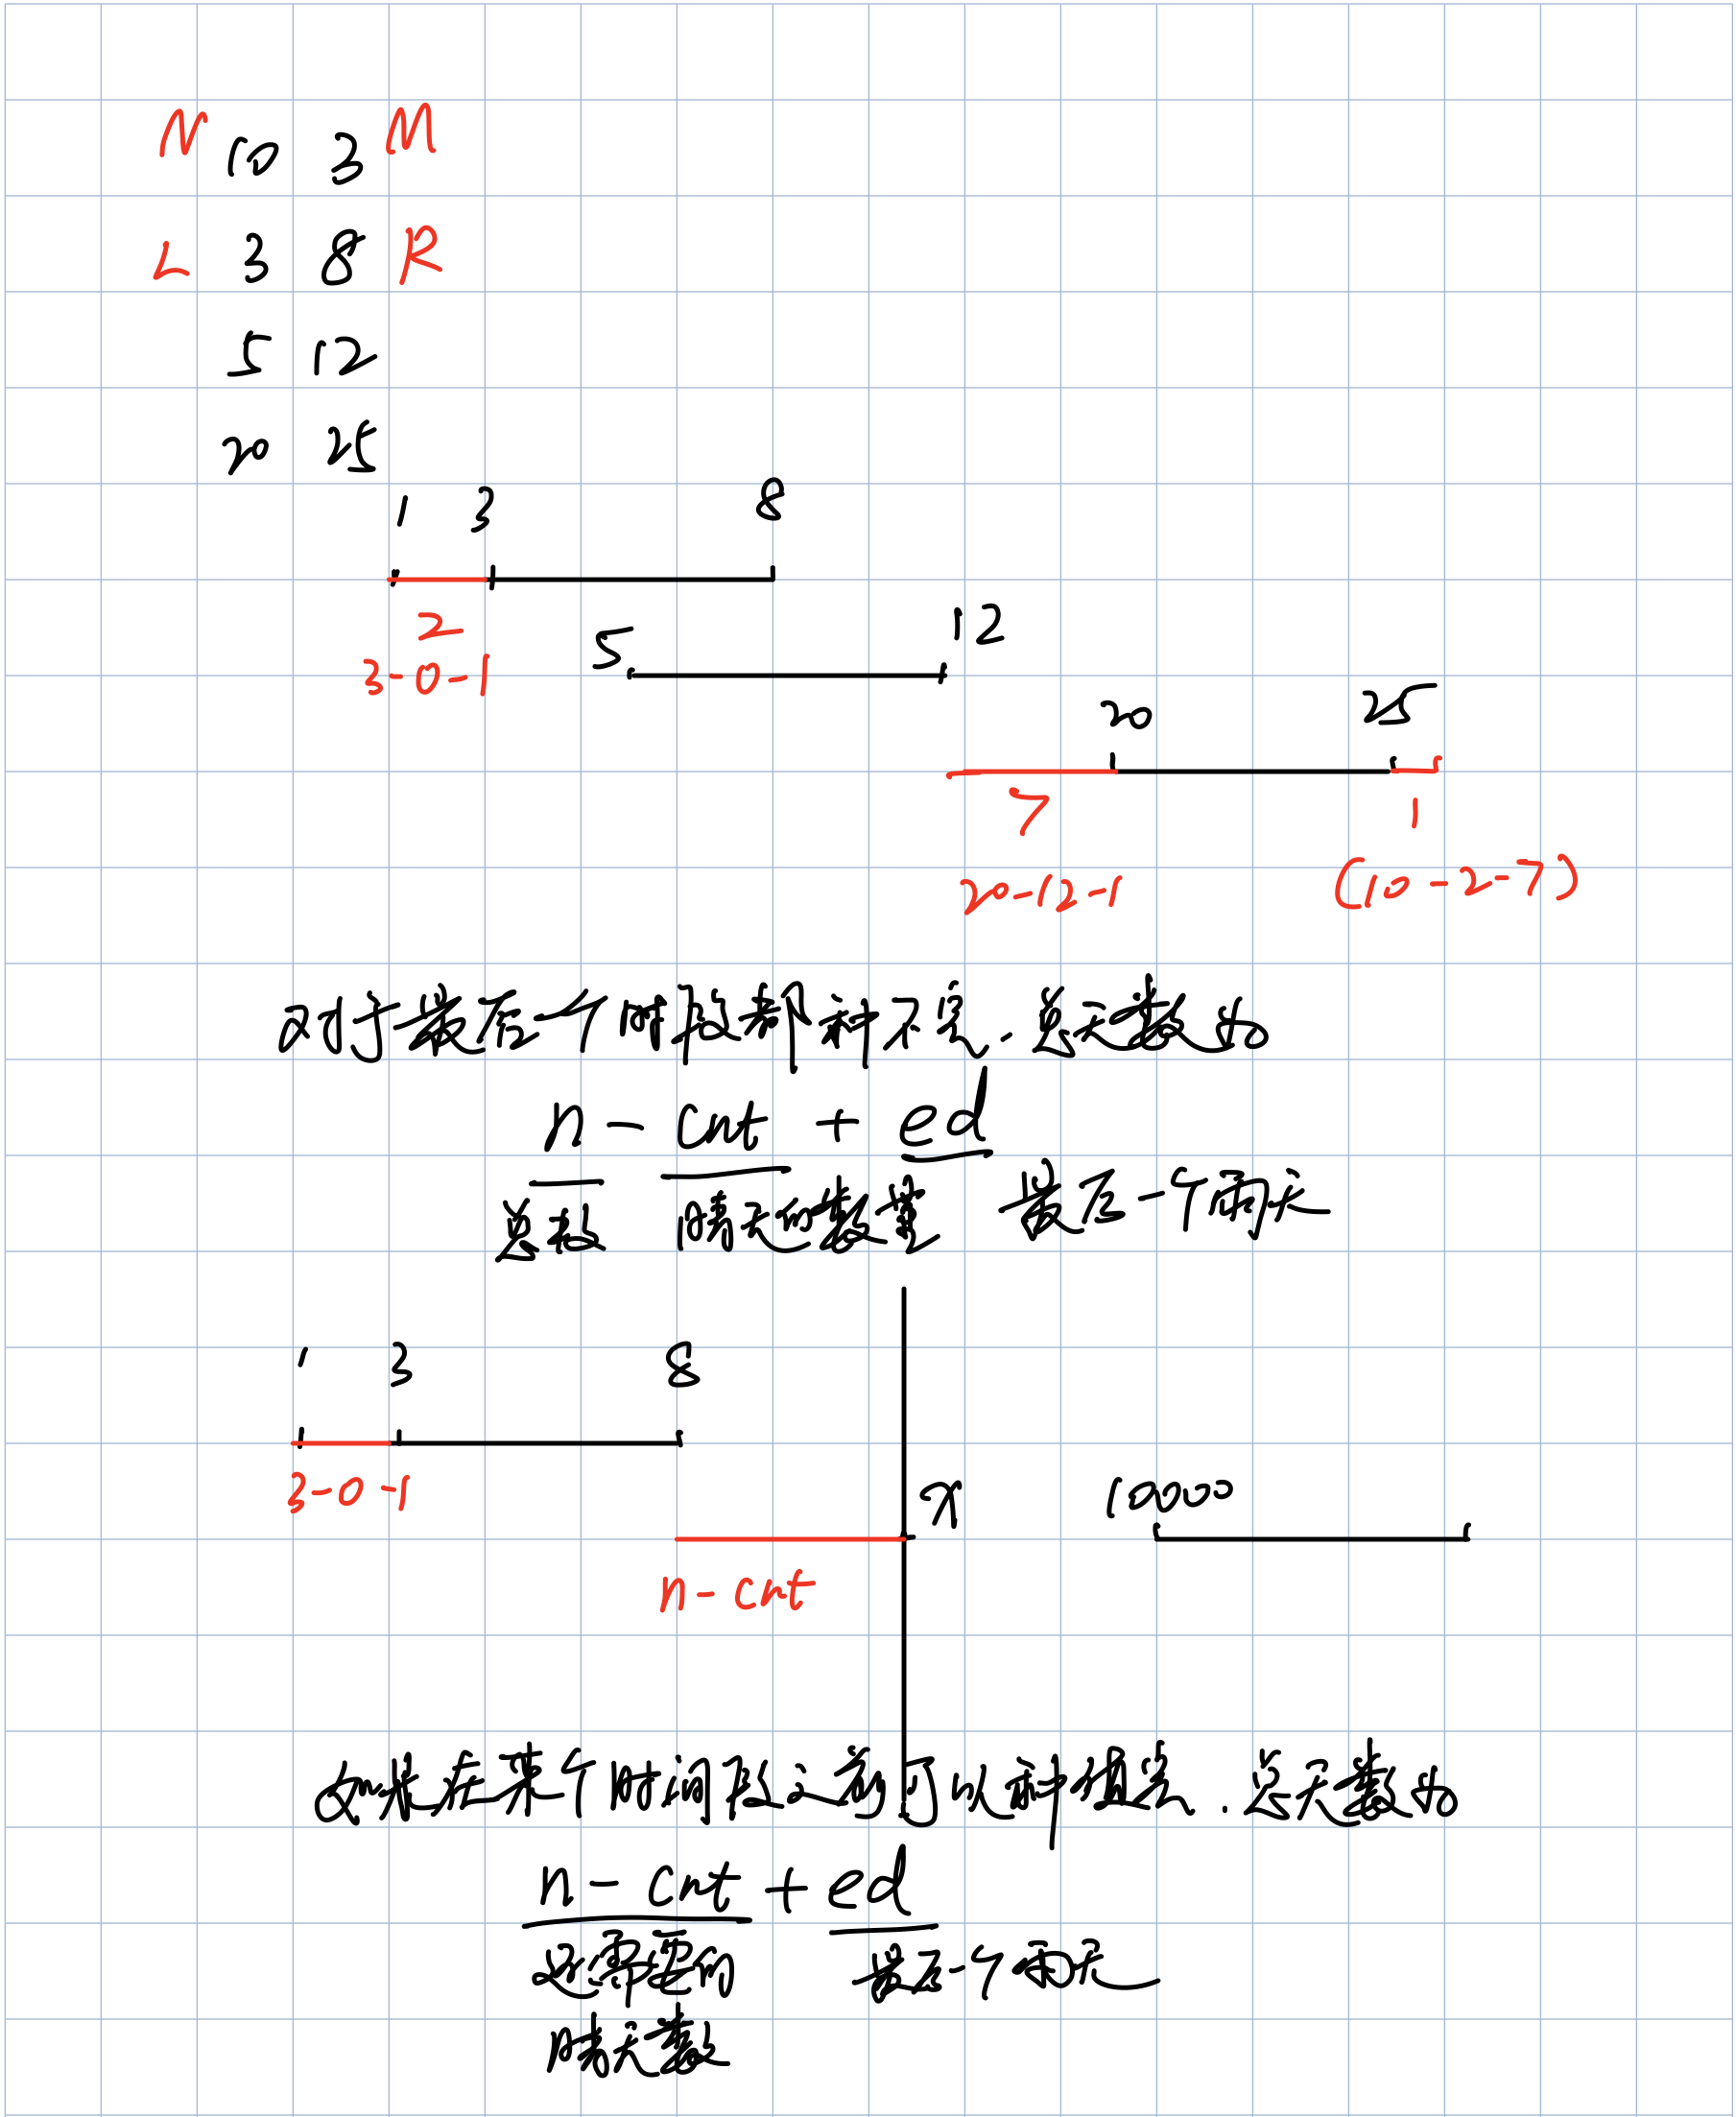 N 10 3 M
L 3 8 R
5 12
20 25
1 3 8
2
3-0-1
5 12
20 25
7 1
20-12-1 (10-2-7)
对于最后一个时段都种不完.总天数为
n - cnt + ed
总数 晴天的数量 最后一个雨天
1 3 8
3-0-1
x 10000
n-cnt
如果在某个时间段达到了以种棵.总天数为
n - cnt + ed
还需要的 最后一个雨天
晴天数